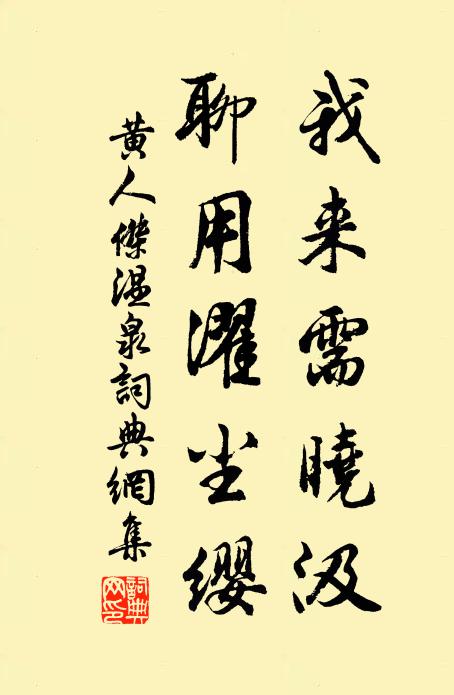 我来需曉汲
聊用濯尘缨
黄人傑温泉詞典網集
詞典网印